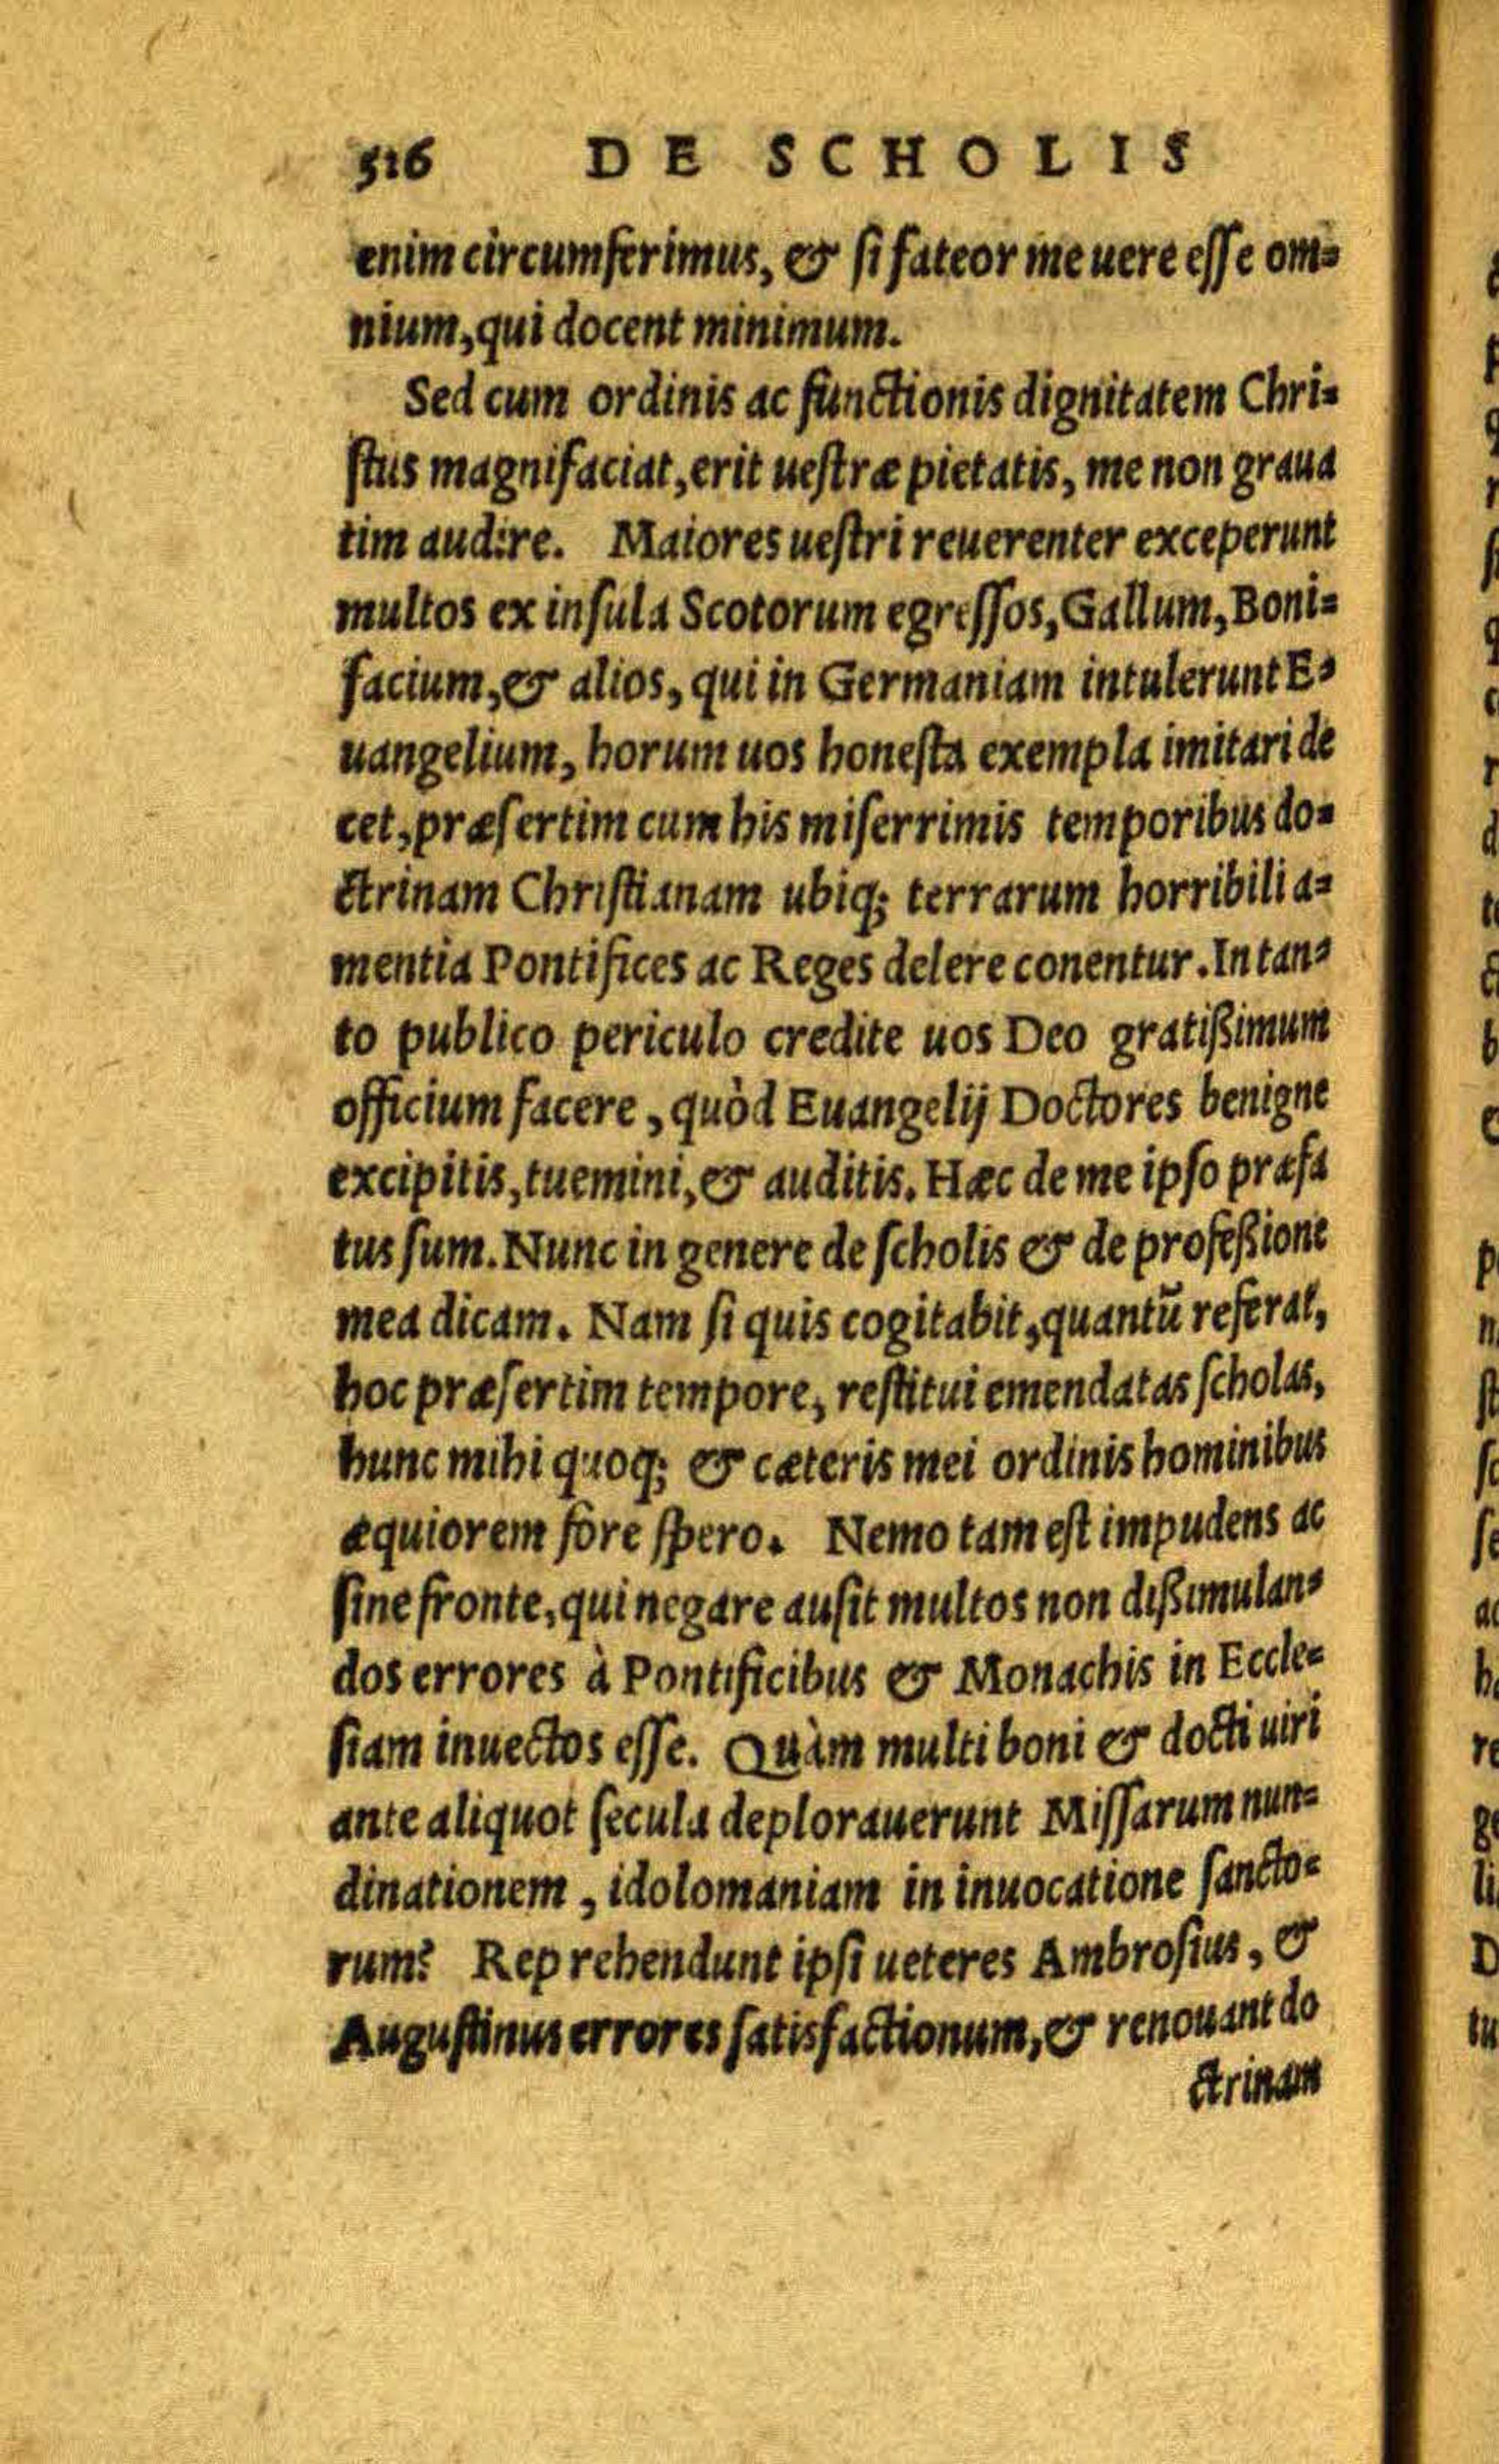 516 DE SCHOLIS
enim circumferimus, & si fateor me uere esse om=
nium, qui docent minimum.
Sed cum ordinis ac functionis dignitatem Chri=
stus magnifaciat, erit uestræ pietatis, me non graua
tim audire. Maiores uestri reuerenter exceperunt
multos ex insula Scotorum egressos, Gallum, Boni=
facium, & alios, qui in Germaniam intulerunt E=
uangelium, horum uos honesta exempla imitari de
cet, præsertim cum his miserrimis temporibus do=
ctrinam Christianam ubiq; terrarum horribili a=
mentia Pontifices ac Reges delere conentur. In tan=
to publico periculo credite uos Deo gratißimum
officium facere, quòd Euangelij Doctores benigne
excipitis, tuemini, & auditis. Hæc de me ipso præfa
tus sum. Nunc in genere de scholis & de profeßione
mea dicam. Nam si quis cogitabit, quantũ referat,
hoc præsertim tempore, restitui emendatas scholas,
hunc mihi quoq; & cæteris mei ordinis hominibus
æquiorem fore spero. Nemo tam est impudens ac
sine fronte, qui negare ausit multos non dißimulan=
dos errores à Pontificibus & Monachis in Eccle=
siam inuectos esse. Quàm multi boni & docti uiri
ante aliquot secula deplorauerunt Missarum nun=
dinationem, idolomaniam in inuocatione sancto=
rum? Reprehendunt ipsi ueteres Ambrosius, &
Augustinus errores satisfactionum, & renouant do
ctrinam